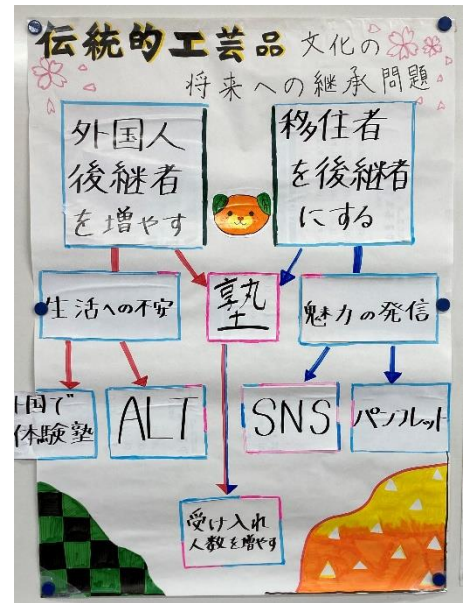 伝統的工芸品 文化の
将来への継承問題
外国人
後継者
を増やす
移住者
を後継者
にする
生活への不安
塾
魅力の発信
国で
体験塾
ALT
SNS
パンフレット
受け入れ
人数を増やす